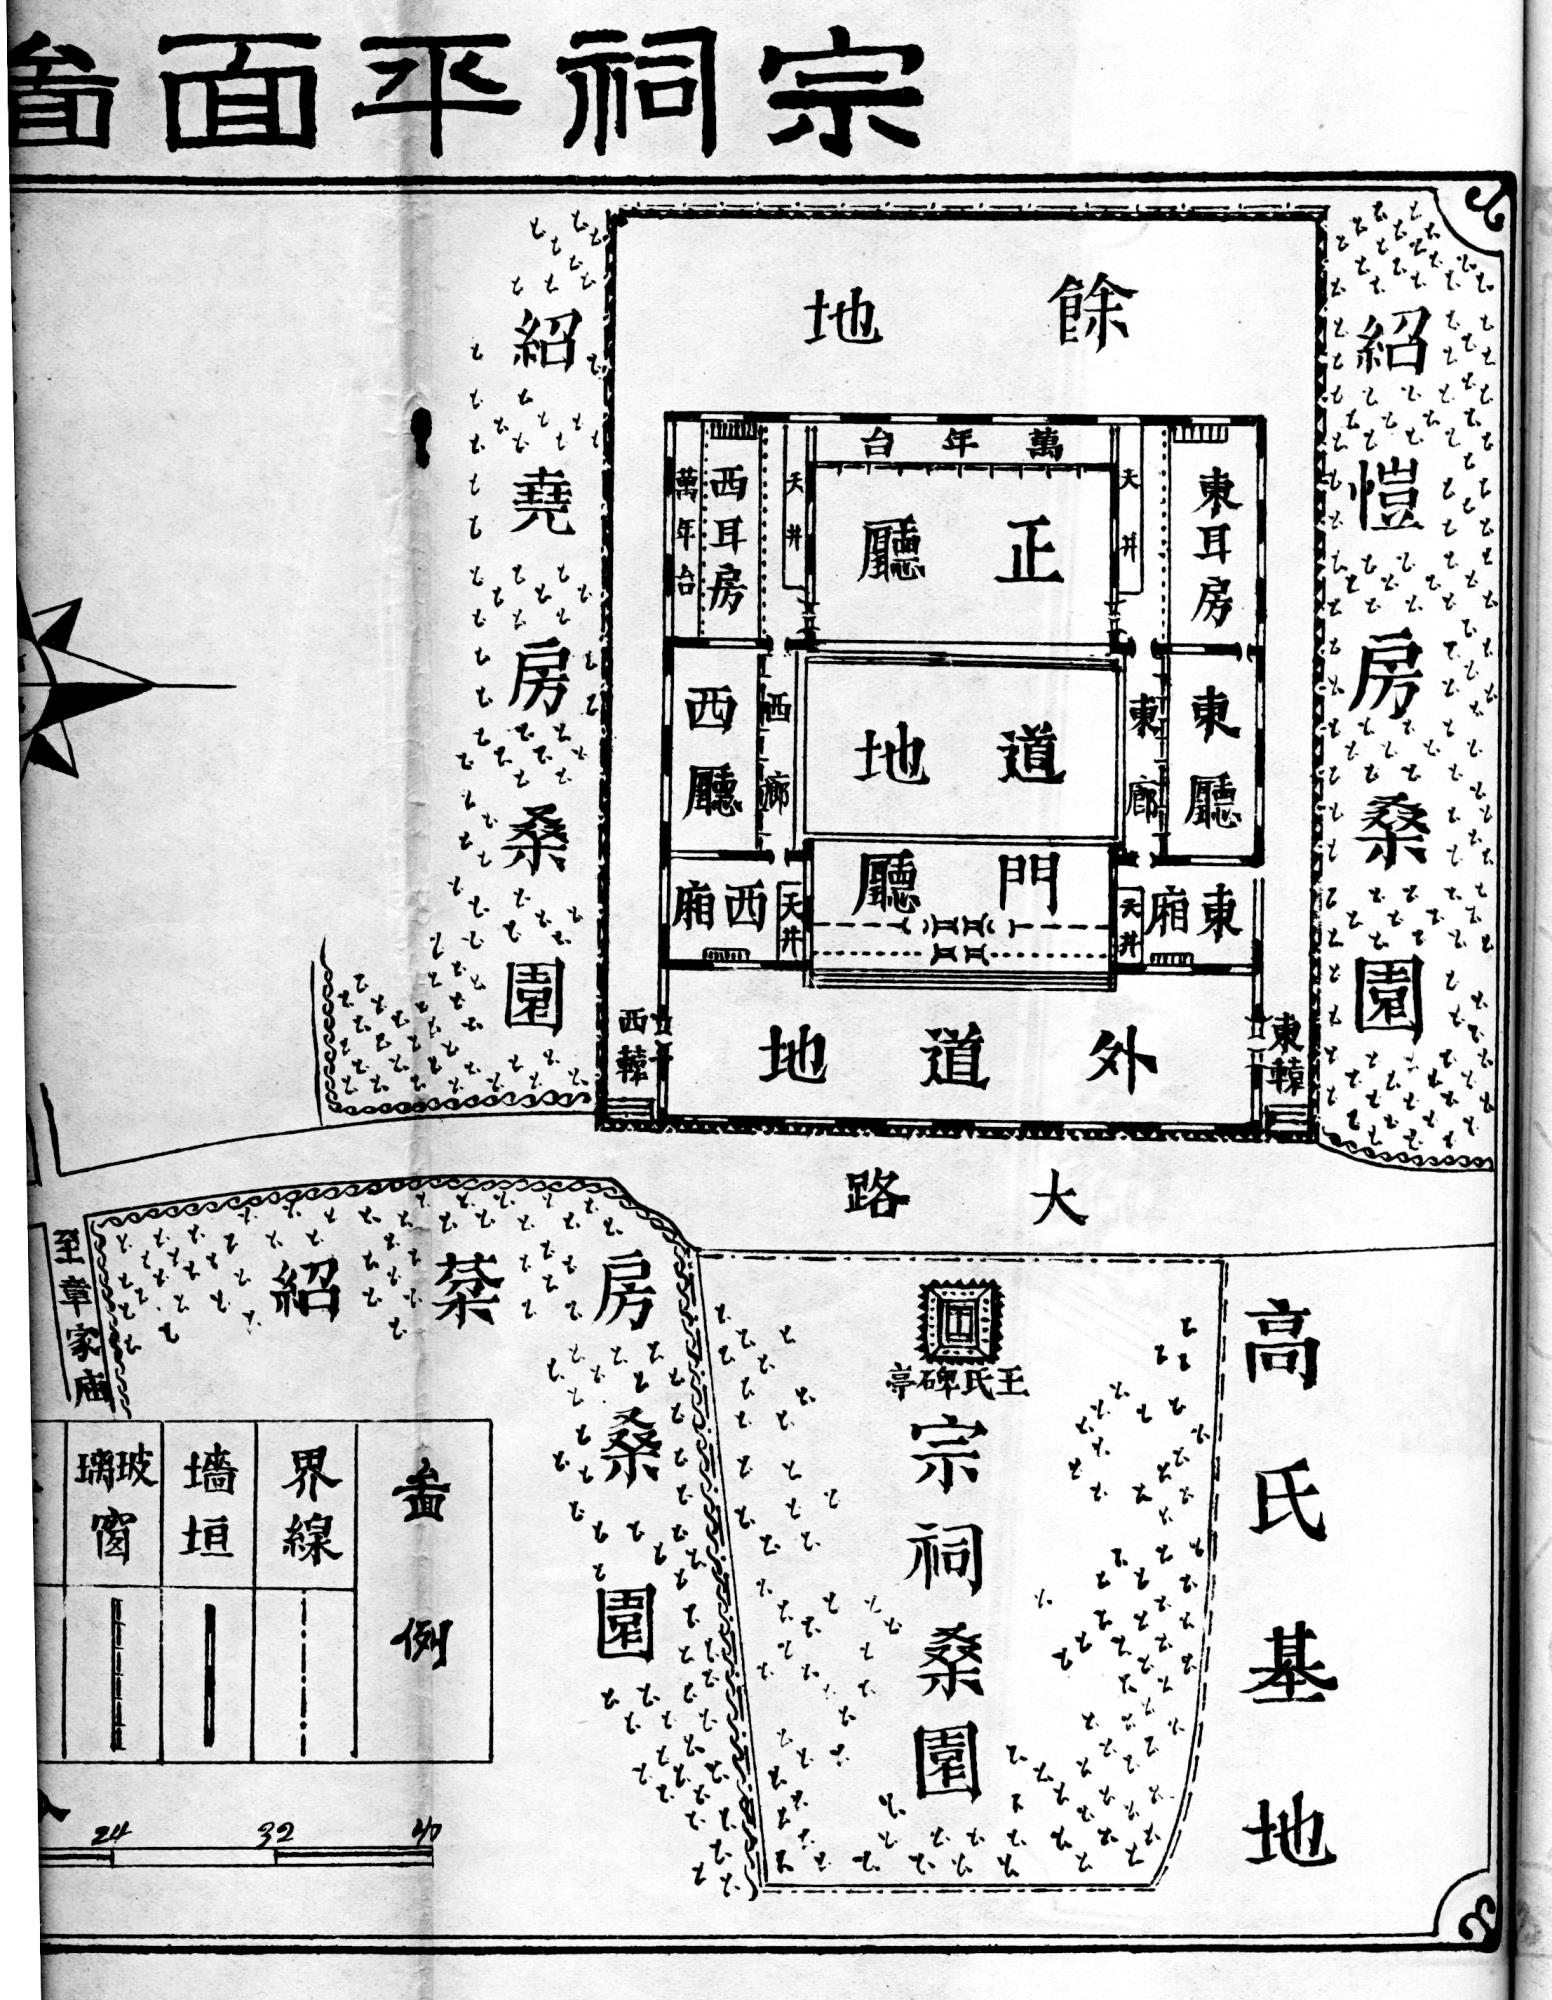 宗祠平面啚
餘地
紹愷房桑園
紹堯房桑園
萬年台
東耳房
天井
正廳
天井
西耳房
萬年台
東廳
東廊
道地
西廊
西廳
東廂
天井
門廳
天井
西廂
東轅
外道地
西轅
大路
高氏基地
王氏碑亭
宗祠桑園
紹棻房桑園
至章家廟
啚例
界線
墻垣
玻璃窗
24 32 40